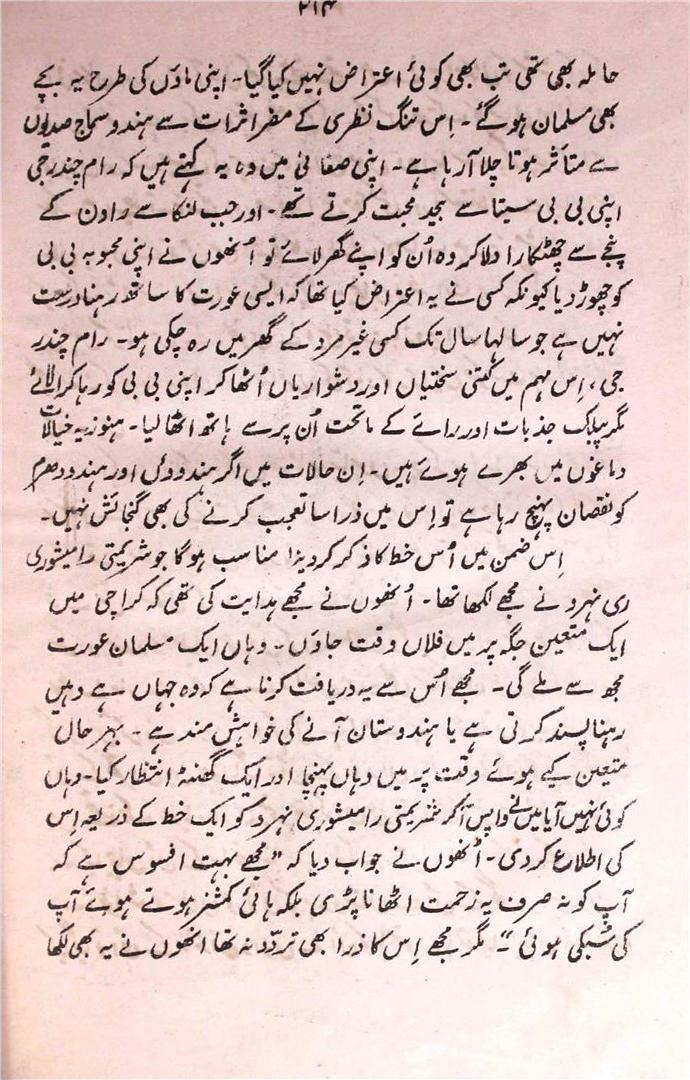 ۲۱۴
حاملہ بھی تھی تب بھی کوئی اعتراض نہیں کیا گیا۔ اپنی ماؤں کی طرح یہ بچے
بھی مسلمان ہو گئے۔ اِس تنگ نظری کے مضر اثرات سے ہندو سماج صدیوں
سے متأثر ہوتا چلا آ رہا ہے۔ اپنی صفائی میں وہ یہ کہتے ہیں کہ رام چندر جی
اپنی بی بی سیتا سے بیحد محبت کرتے تھے۔ اور جب لنکا سے راون کے
پنجے سے چھٹکارا دلا کر وہ اُن کو اپنے گھر لائے تو اُنھوں نے اپنی محبوبہ بی بی
کو چھوڑ دیا کیونکہ کسی نے یہ اعتراض کیا تھا کہ ایسی عورت کا ساتھ رہنا درست
نہیں ہے جو سالہا سال تک کسی غیر مرد کے گھر میں رہ چکی ہو۔ رام چندر
جی، اِس مہم میں کتنی سختیاں اور دشواریاں اُٹھا کر اپنی بی بی کو رہا کرا لائے
مگر پبلک جذبات اور رائے کے ماتحت اُن پر سے ہاتھ اٹھا لیا۔ ہنوز یہ خیالات
دماغوں میں بھرے ہوئے ہیں۔ اِن حالات میں اگر ہندوؤں اور ہندو دھرم
کو نقصان پہنچ رہا ہے تو اِس میں ذرا سا تعجب کرنے کی بھی گنجائش نہیں۔
اِس ضمن میں اُس خط کا ذکر کر دینا مناسب ہوگا جو شریمتی رامیشوری
ری نہرو نے مجھے لکھا تھا۔ اُنھوں نے مجھے ہدایت کی تھی کہ کراچی میں
ایک متعین جگہ پر میں فلاں وقت جاؤں۔ وہاں ایک مسلمان عورت
مجھ سے ملے گی۔ مجھے اُس سے یہ دریافت کرنا ہے کہ وہ جہاں ہے وہیں
رہنا پسند کرتی ہے یا ہندوستان آنے کی خواہش مند ہے۔ بہر حال
متعین کیے ہوئے وقت پر میں وہاں پہنچا اور ایک گھنٹہ انتظار کیا۔ وہاں
کوئی نہیں آیا میں نے واپس آ کر شریمتی رامیشوری نہرو کو ایک خط کے ذریعہ اِس
کی اطلاع کر دی۔ اُنھوں نے جواب دیا کہ ”مجھے بہت افسوس ہے کہ
آپ کو نہ صرف یہ زحمت اٹھانا پڑی بلکہ ہائی کمشنر ہوتے ہوئے آپ
کی سُبکی ہوئی“۔ مگر مجھے اِس کا ذرا بھی تردّد نہ تھا انھوں نے یہ بھی لکھا